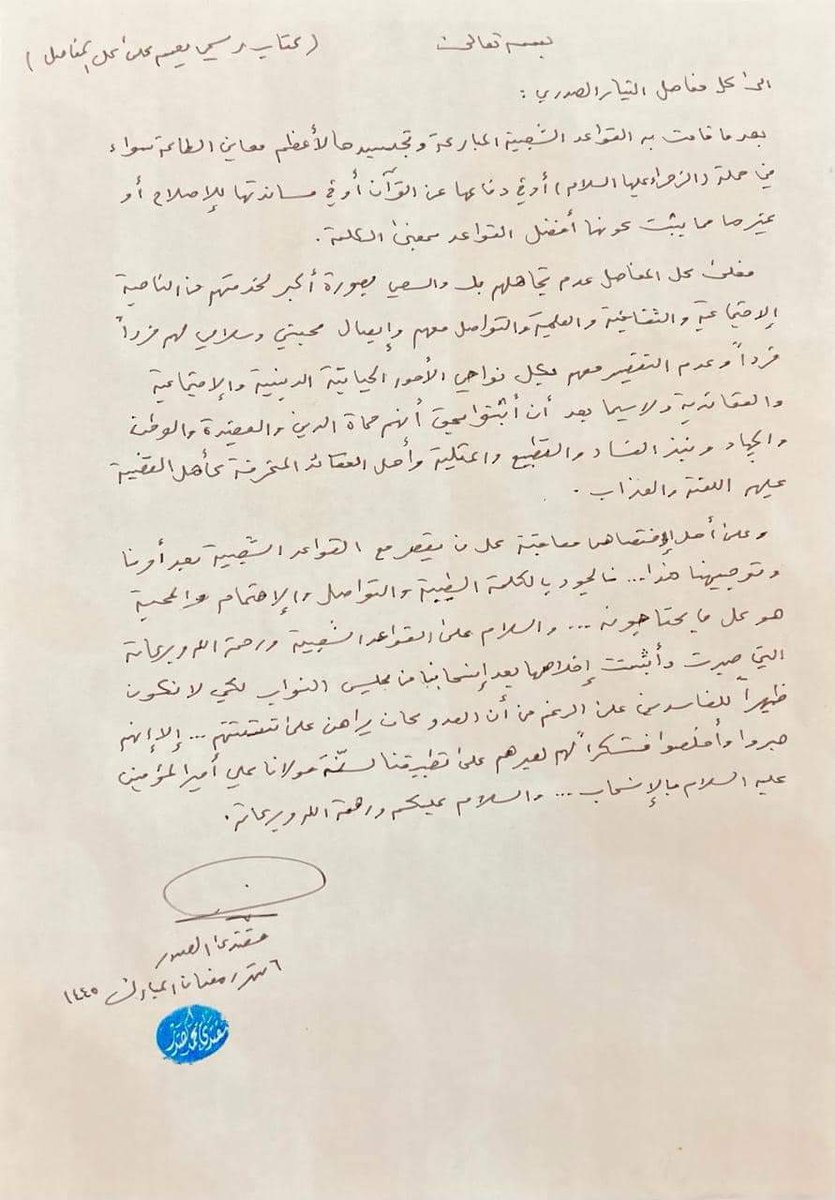 بسمه تعالى
(كتاب رسمي يعمم على كل المفاصل)
الى كل مفاصل التيار الصدري :
بعد ما قامت به القواعد الشعبية المباركة وتجسيدها لأعظم معاني الطاعة سواء
في حملة (الزهراء عليها السلام) أو في دفاعها عن القرآن أو في مساندتها للإصلاح أو
غيرها مما يثبت كونها أفضل القواعد بمعنى الكلمة .
فعلى كل المفاصل عدم تجاهلهم بل والسعي بصورة أكبر لخدمتهم من الناحية
الإجتماعية والثقافية والعلمية والتواصل معهم وإيصال محبتي وسلامي لهم فرداً
فرداً وعدم التقصير معهم بكل نواحي الأمور الحياتية الدينية والإجتماعية
والعقائدية ولاسيما بعد أن أثبتوا بحق أنهم حماة الدين والعقيدة والوطن
والجهاد ونبذ الفساد والتطبيع والمثلية وأهل العقائد المنحرفة كأهل القضية
عليهم اللعنة والعذاب .
وعلى أهل الإختصاص معاقبة كل من يقصر مع القواعد الشعبية بعد أمرنا
وتوجيهنا هذا... فالجود بالكلمة الطيبة والتواصل والإهتمام والمحبة
هو كل ما يحتاجونه ... والسلام على القواعد الشعبية ورحمة الله وبركاته
التي صبرت وأثبتت إخلاصها بعد إنسحابنا من مجلس النواب لكي لا نكون
ظهيراً للفاسدين على الرغم من أن العدو كان يراهن على تشتتهم ... إلا إنهم
صبروا وأخلصوا فشكراً لهم لصبرهم على تطبيقنا لسنّة مولانا علي أمير المؤمنين
عليه السلام بالإنسحاب ... والسلام عليكم ورحمة الله وبركاته .
مقتدى الصدر
٦ شهر رمضان المبارك ١٤٤٥